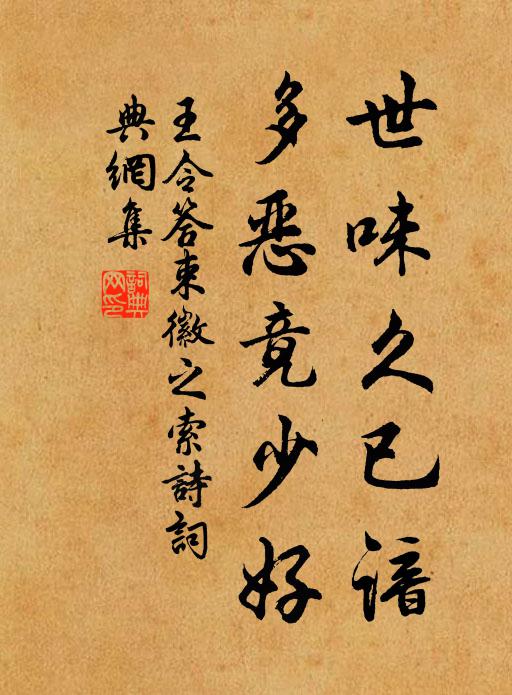 世味久已谙
多恶竟少好
王令答束徽之索詩詞
典網集
詞典
网印